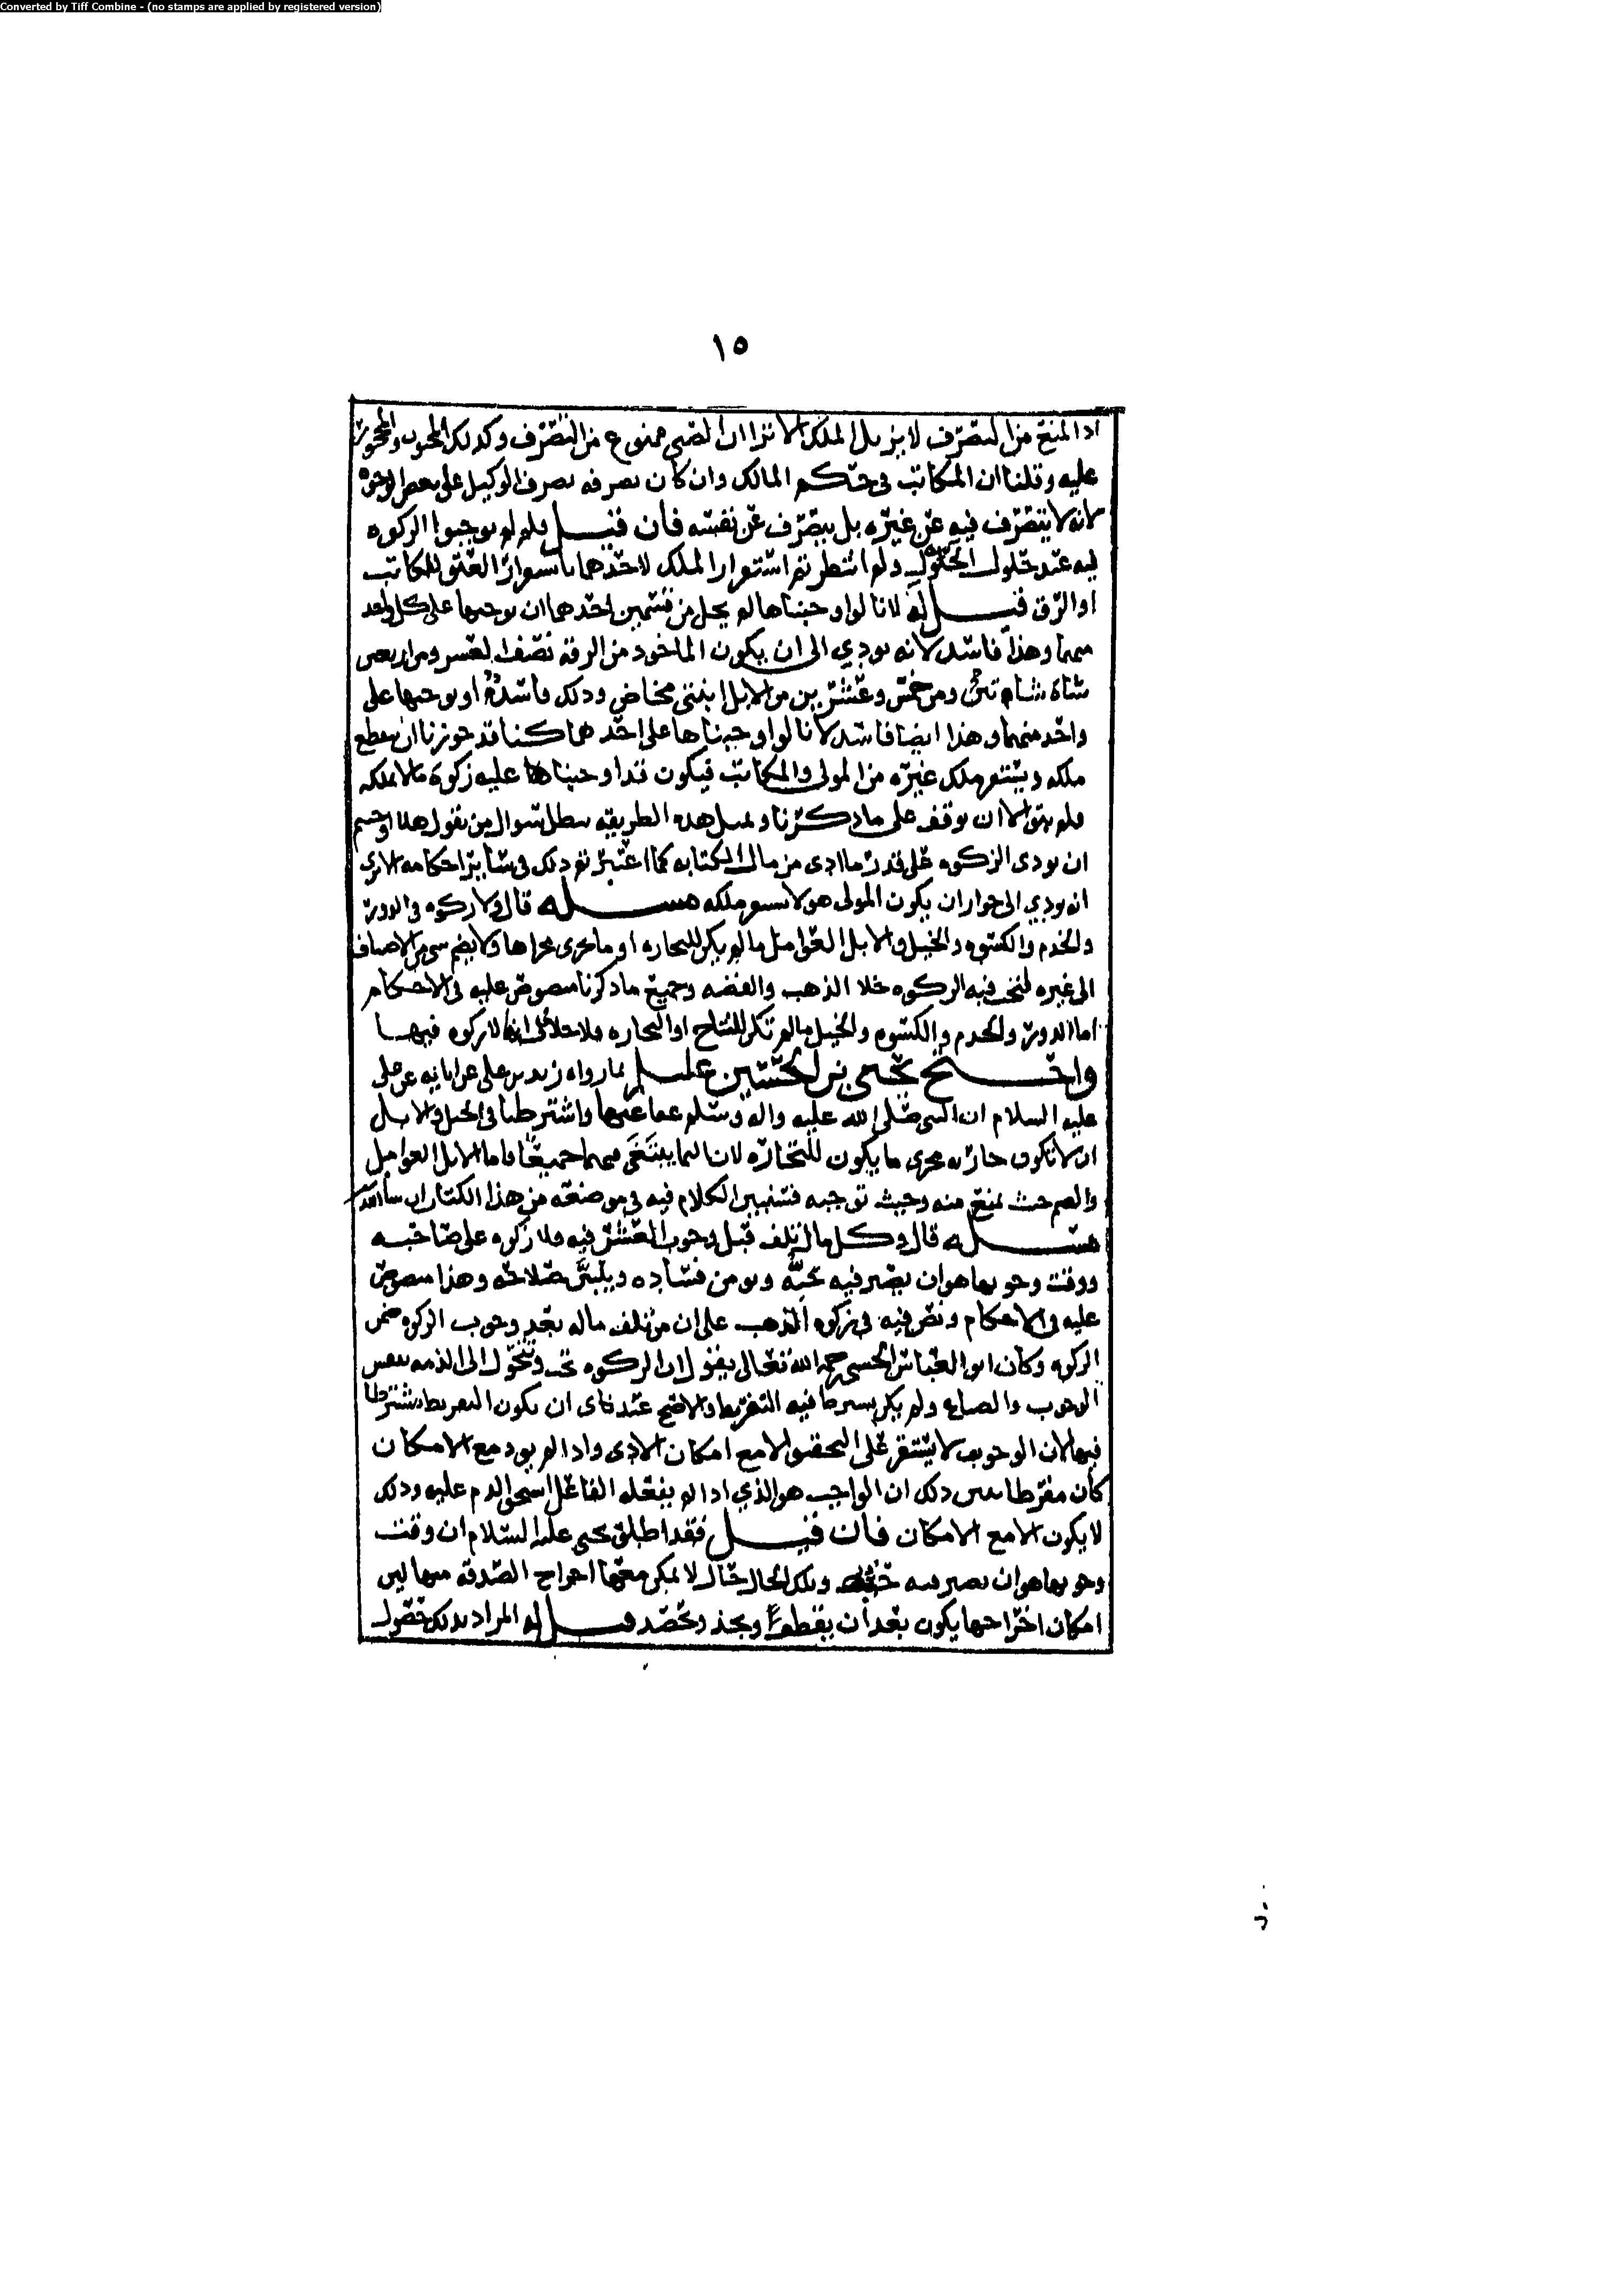 Converted by Tiff Combine - (no stamps are applied by registered version)
١٥
اذا المنع من التصرف لا يزيل الملك الا ترا ان الصبي ممنوع من التصرف وكذلك المجنون والمحجور
عليه وقلنا ان المكاتب في حكم المالك وان كان تصرفه تصرف الوكيل على بعض الوجوه
لانه لا يتصرف فيه عن غيره بل يتصرف عن نفسه فان قيل فلم لم توجبوا الزكوه
فيه عند حلول الحول ولم انتظرتم استقرار الملك لاحدهما باستقرار العتق للمكاتب
او الرق قيل له لانا لو اوجبناها لم يخل من قسمين احدهما ان نوجبها على كل واحد
منهما وهذا فاسد لانه يودي الى ان يكون الماخوذ من الرقة نصف العشر ومن اربعين
شاة شاتين ومن خمس وعشرين من الابل ابنتي مخاض وذلك فاسد او نوجبها على
واحد منهما وهذا ايضا فاسد لانا لو اوجبناها على احدهما كنا قد جوزنا ان ينقطع
ملكه ويستقر ملك غيره من المولى والمكاتب فيكون قد اوجبناها عليه زكوة مالا يملكه
فلم يبق الا ان توقف على ما ذكرنا وبمثل هذه الطريقه يبطل سوال من يقول هلا اوجبتم
ان يودي الزكوه على قدر ما ادى من مال الكتابه كما اعتبرتم ذلك في سائر احكامه الا ترى
انه يودي الى جواز ان يكون المولى هو لا يستقر ملكه مسله قال ولا زكوه في الدور
والخدم والكسوه والخيل والابل العوامل ما لم يكن للتجاره او ما جرى مجراها ولا يضم شي من الاصناف
الى غيره لتجب فيه الزكوه خلا الذهب والفضه وجميع ما ذكرنا منصوص عليه في الاحكام
اما الدور والخدم والكسوه والخيل ما لم تكن للنتاج او التجاره فلا خلاف انه لا زكوه فيها
واحتج يحيى بن الحسين عليلم بما رواه زيد بن علي عن ابايه عن علي
عليه السلام ان النبي صلى الله عليه واله وسلم عفا عنها واشترطنا في الخيل والابل
ان لا تكون جاريه مجرى ما يكون للتجاره لان النما يبتغى فيهما جميعا فاما الابل العوامل
والضم حيث نمنع منه وحيث نوجبه فسنبين الكلام فيه في موضعه من هذا الكتاب ان شا الله
مسله قال وكل مال تلف قبل وجوب العشر فيه فلا زكوه على صاحبه
ووقت وجوبها هو ان يصير فيه حبه ويومن فساده ويتبين صلاحه وهذا منصوص
عليه في الاحكام ونص فيه في زكوه الذهب على ان من تلف ماله بعد وجوب الزكوه ضمن
الزكوه وكان ابو العباس الحسني رحمه الله تعالى يقول ان الزكوه تجب وتتحول الى الذمه بنفس
الوجوب والضمان ولم يكن يشرط فيه التفريط والاصح عندنا ان يكون التفريط مشترطا
فيها لان الوجوب لا يستقر على التحقيق الا مع امكان الادى واذا لم يود مع الامكان
كان مفرطا يبين ذلك ان الواجب هو الذي اذا لم يفعله الفاعل استحق الذم عليه وذلك
لا يكون الا مع الامكان فان قيل فقد اطلق يحيى عليه السلام ان وقت
وجوبها هو ان يصير فيه وتلك الحال حال لا يمكن معها اخراج الصدقه منها ليس
امكان اخراجها يكون بعد ان يقطع ويجذ ويحصد قيل له المراد بذلك حصول